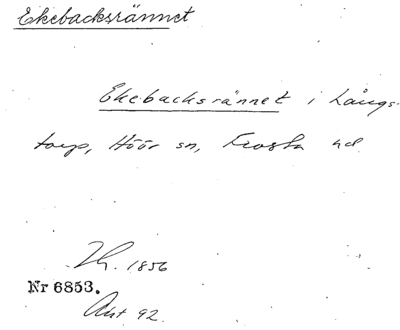 Ekebacksrännet
Ekebacksrännet i Långs-
torp, Höör sn, Frosta hd.
Th. 1856
Nr 6853.
Akt 92.